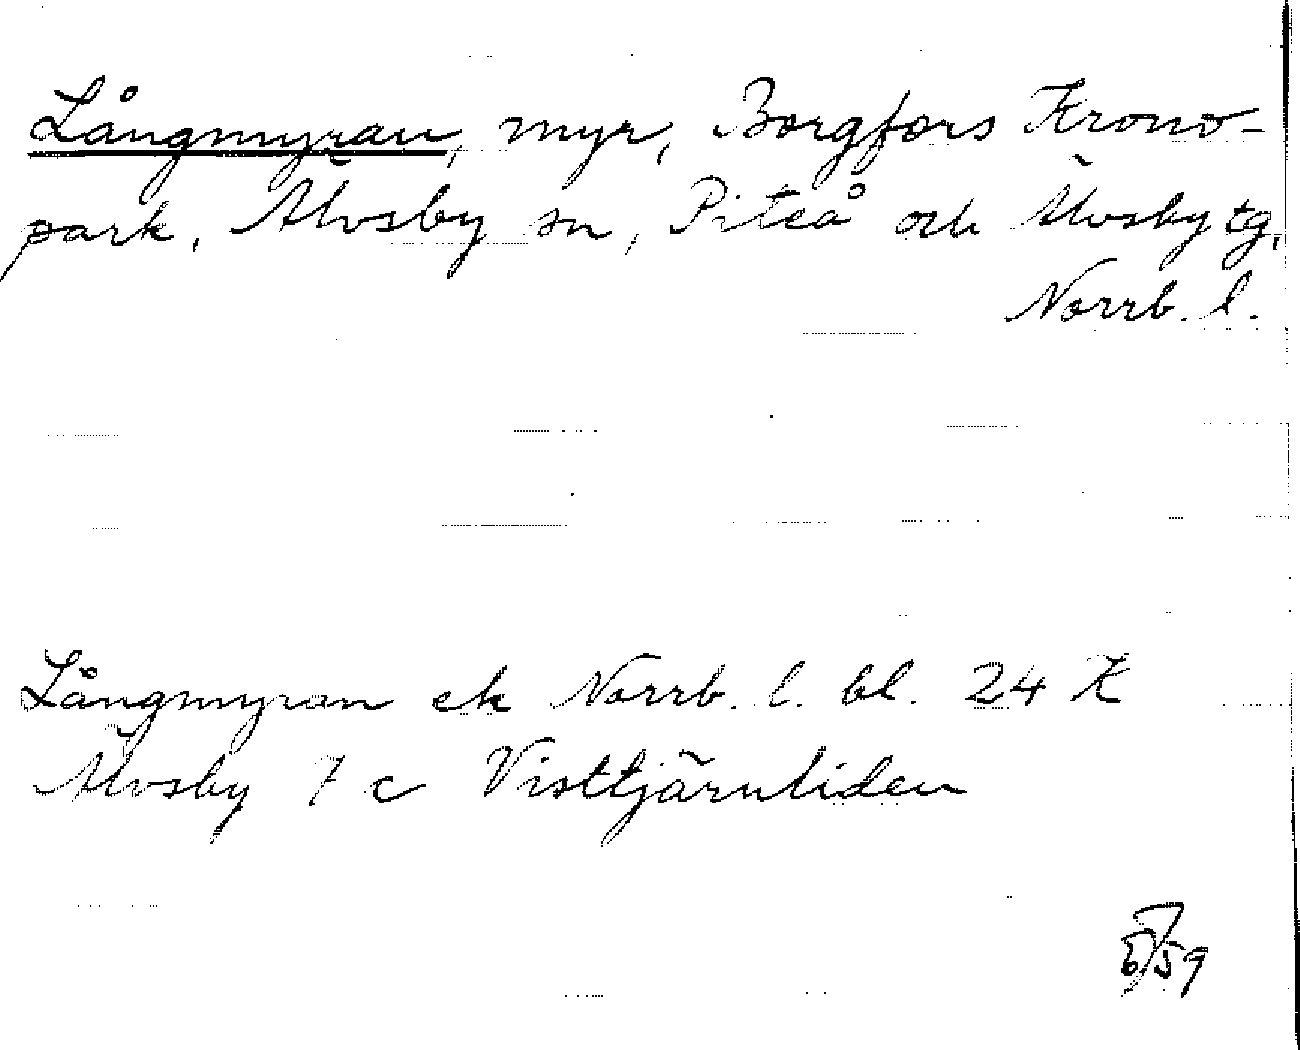 Långmyran, myr, Borgfors Krono-
park, Älvsby sn, Piteå och Älvsby tg,
Norrb. l.
Långmyran ek Norrb. l. bl. 24 K
Älvsby 7 c Visttjärnliden